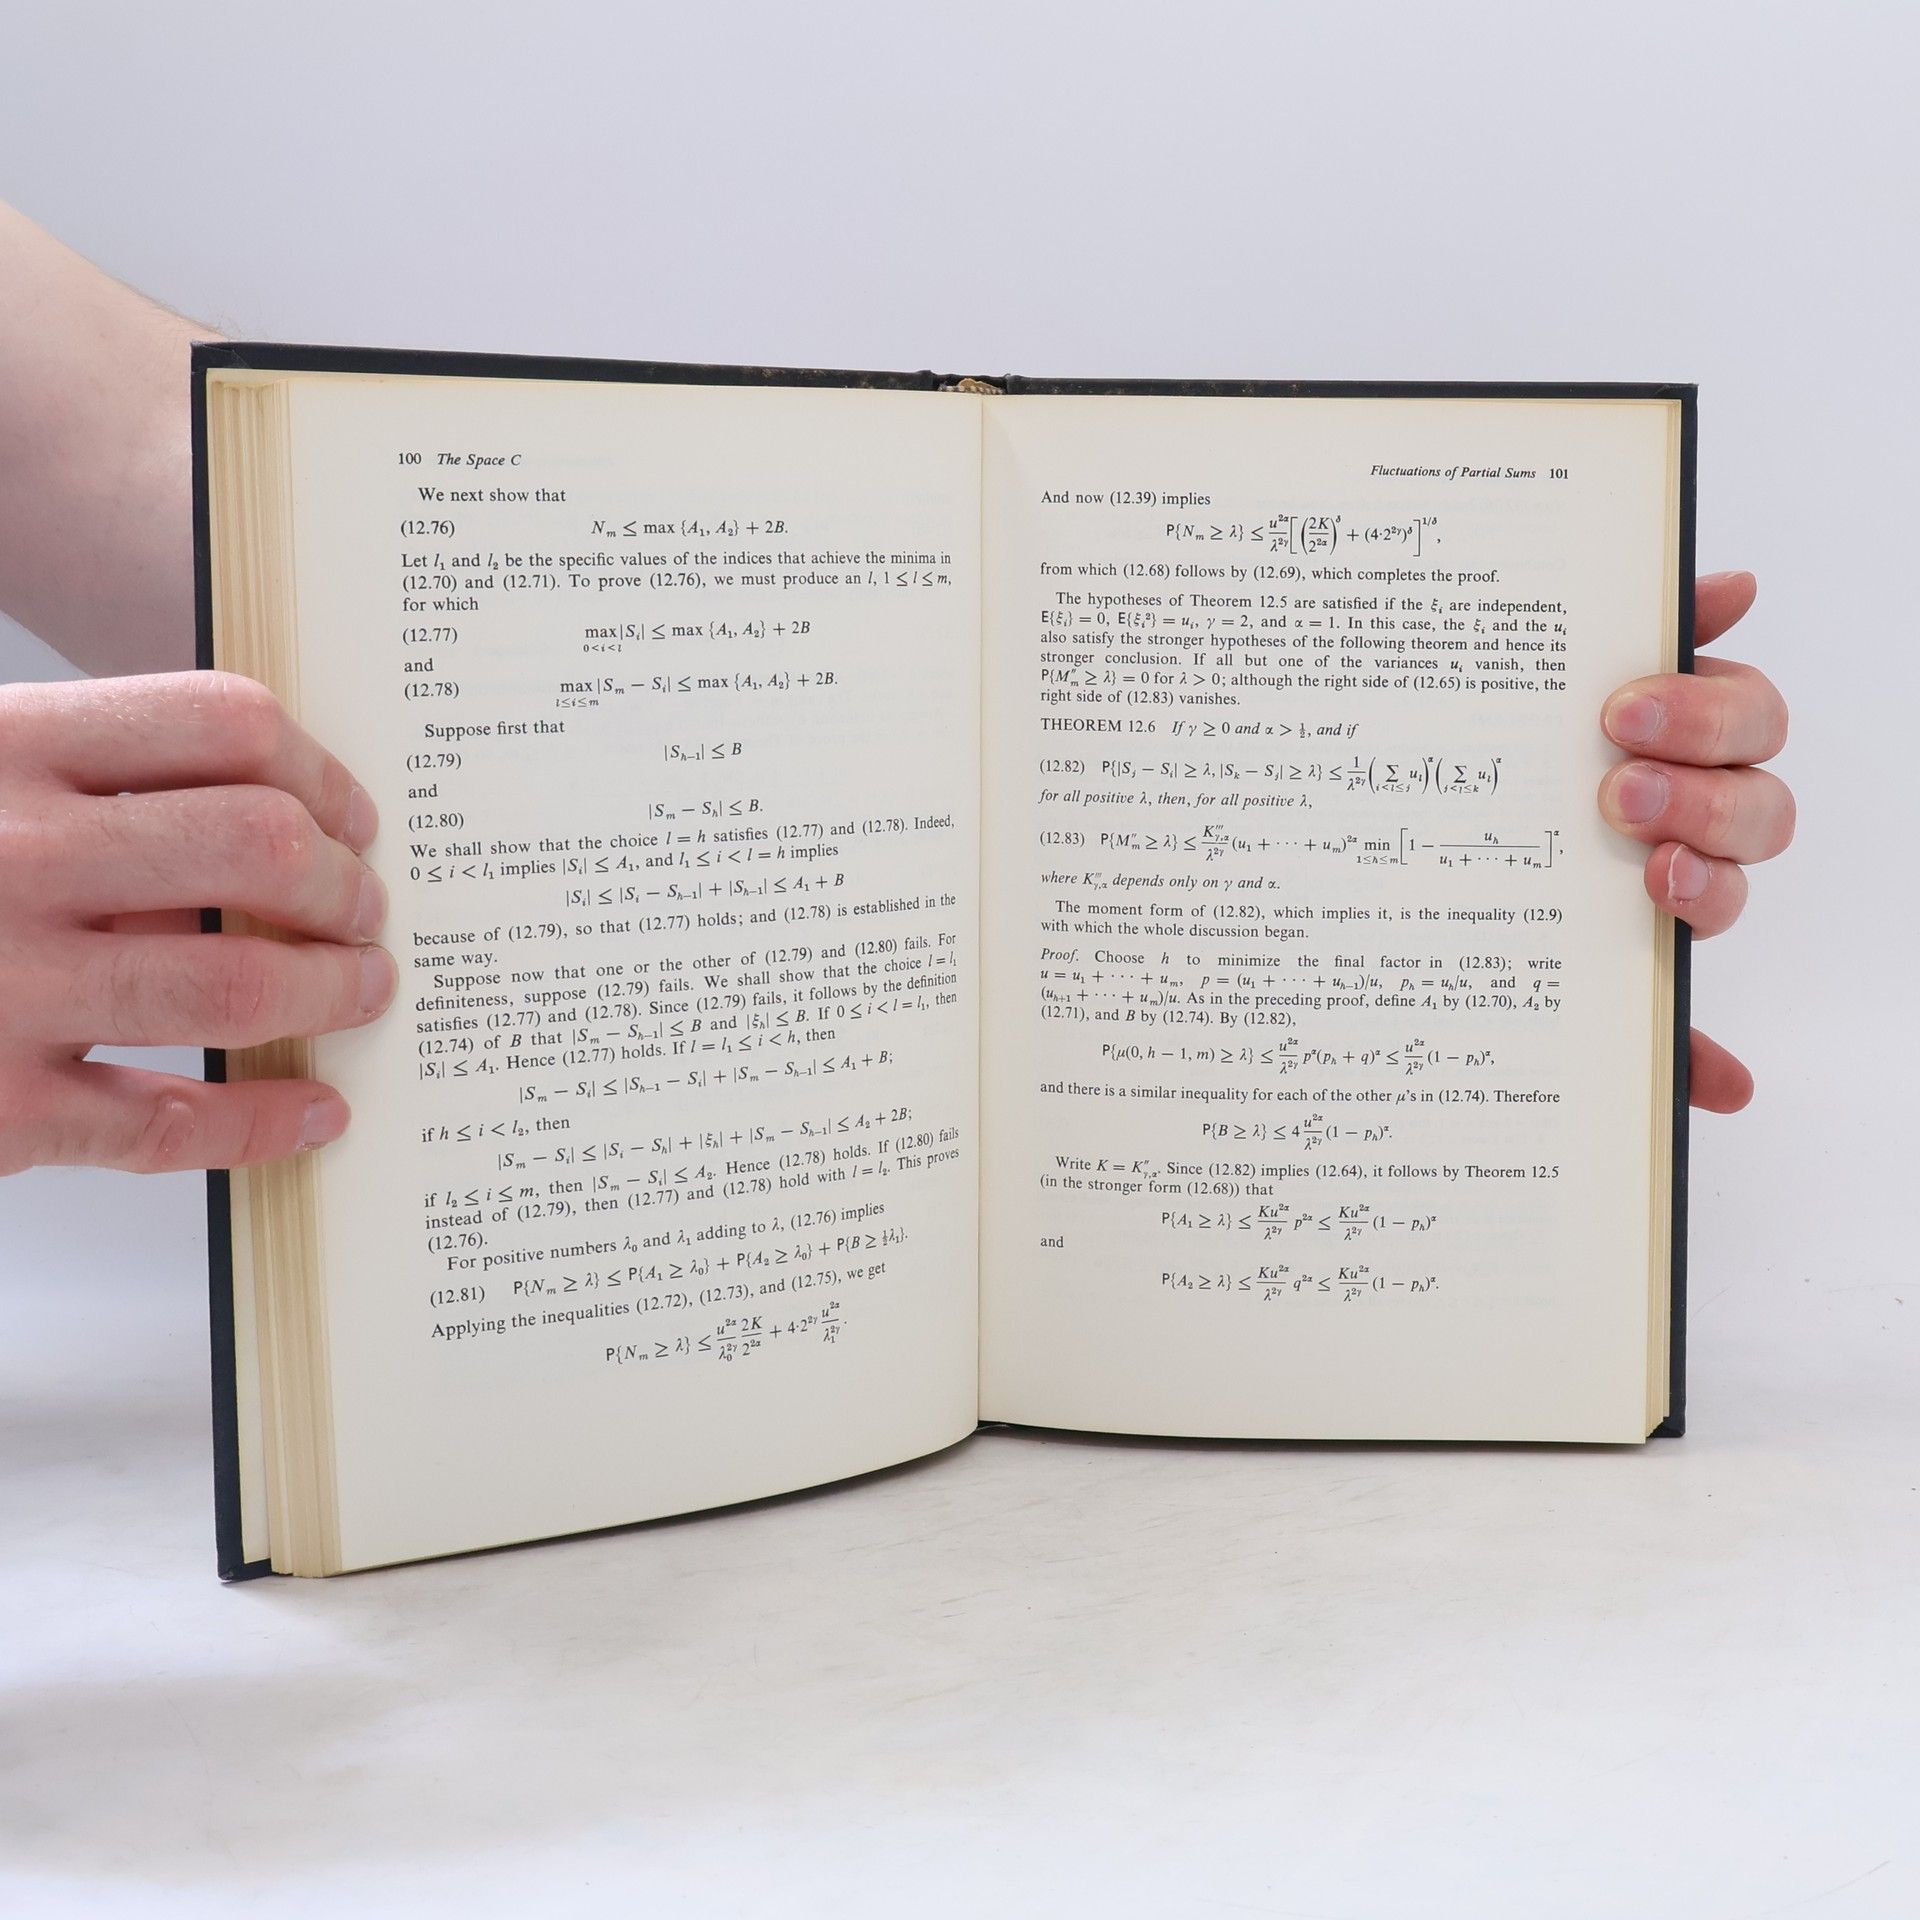 100 The Space C
We next show that
(12.76) N_m ≤ max {A_1, A_2} + 2B.
Let l_1 and l_2 be the specific values of the indices that achieve the minima in
(12.70) and (12.71). To prove (12.76), we must produce an l, 1 ≤ l ≤ m,
for which
(12.77) max_{0<i<l} |S_i| ≤ max {A_1, A_2} + 2B
and
(12.78) max_{l≤i≤m} |S_m − S_i| ≤ max {A_1, A_2} + 2B.
Suppose first that
(12.79) |S_{h−1}| ≤ B
and
(12.80) |S_m − S_h| ≤ B.
We shall show that the choice l = h satisfies (12.77) and (12.78). Indeed,
0 ≤ i < l_1 implies |S_i| ≤ A_1, and l_1 ≤ i < l = h implies
|S_i| ≤ |S_i − S_{h−1}| + |S_{h−1}| ≤ A_1 + B
because of (12.79), so that (12.77) holds; and (12.78) is established in the
same way.
Suppose now that one or the other of (12.79) and (12.80) fails. For
definiteness, suppose (12.79) fails. We shall show that the choice l = l_1
satisfies (12.77) and (12.78). Since (12.79) fails, it follows by the definition
(12.74) of B that |S_m − S_{h−1}| ≤ B and |ξ_h| ≤ B. If 0 ≤ i < l = l_1, then
|S_i| ≤ A_1. Hence (12.77) holds. If l = l_1 ≤ i < h, then
|S_m − S_i| ≤ |S_{h−1} − S_i| + |S_m − S_{h−1}| ≤ A_1 + B;
if h ≤ i < l_2, then
|S_m − S_i| ≤ |S_i − S_h| + |ξ_h| + |S_m − S_{h−1}| ≤ A_2 + 2B;
if l_2 ≤ i ≤ m, then |S_m − S_i| ≤ A_2. Hence (12.78) holds. If (12.80) fails
instead of (12.79), then (12.77) and (12.78) hold with l = l_2. This proves
(12.76).
For positive numbers λ_0 and λ_1 adding to λ, (12.76) implies
(12.81) P{N_m ≥ λ} ≤ P{A_1 ≥ λ_0} + P{A_2 ≥ λ_0} + P{B ≥ ½λ_1}.
Applying the inequalities (12.72), (12.73), and (12.75), we get
P{N_m ≥ λ} ≤ u^{2α}/λ_0^{2γ} 2K/2^{2α} + 4·2^{2γ} u^{2α}/λ_1^{2γ}.
Fluctuations of Partial Sums 101
And now (12.39) implies
P{N_m ≥ λ} ≤ u^{2α}/λ^{2γ} [(2K/2^{2α})^δ + (4·2^{2γ})^δ]^{1/δ},
from which (12.68) follows by (12.69), which completes the proof.
The hypotheses of Theorem 12.5 are satisfied if the ξ_i are independent,
E{ξ_i} = 0, E{ξ_i^2} = u_i, γ = 2, and α = 1. In this case, the ξ_i and the u_i
also satisfy the stronger hypotheses of the following theorem and hence its
stronger conclusion. If all but one of the variances u_i vanish, then
P{M″_m ≥ λ} = 0 for λ > 0; although the right side of (12.65) is positive, the
right side of (12.83) vanishes.
THEOREM 12.6 If γ ≥ 0 and α > ½, and if
(12.82) P{|S_j − S_i| ≥ λ, |S_k − S_j| ≥ λ} ≤ 1/λ^{2γ} (∑_{i<l≤j} u_l)^α (∑_{j<l≤k} u_l)^α
for all positive λ, then, for all positive λ,
(12.83) P{M″_m ≥ λ} ≤ K‴_{γ,α}/λ^{2γ} (u_1 + · · · + u_m)^{2α} min_{1≤h≤m} [1 − u_h/(u_1 + · · · + u_m)]^α,
where K‴_{γ,α} depends only on γ and α.
The moment form of (12.82), which implies it, is the inequality (12.9)
with which the whole discussion began.
Proof. Choose h to minimize the final factor in (12.83); write
u = u_1 + · · · + u_m, p = (u_1 + · · · + u_{h−1})/u, p_h = u_h/u, and q =
(u_{h+1} + · · · + u_m)/u. As in the preceding proof, define A_1 by (12.70), A_2 by
(12.71), and B by (12.74). By (12.82),
P{μ(0, h − 1, m) ≥ λ} ≤ u^{2α}/λ^{2γ} p^α(p_h + q)^α ≤ u^{2α}/λ^{2γ} (1 − p_h)^α,
and there is a similar inequality for each of the other μ's in (12.74). Therefore
P{B ≥ λ} ≤ 4 u^{2α}/λ^{2γ} (1 − p_h)^α.
Write K = K″_{γ,α}. Since (12.82) implies (12.64), it follows by Theorem 12.5
(in the stronger form (12.68)) that
P{A_1 ≥ λ} ≤ Ku^{2α}/λ^{2γ} p^{2α} ≤ Ku^{2α}/λ^{2γ} (1 − p_h)^α
and
P{A_2 ≥ λ} ≤ Ku^{2α}/λ^{2γ} q^{2α} ≤ Ku^{2α}/λ^{2γ} (1 − p_h)^α.